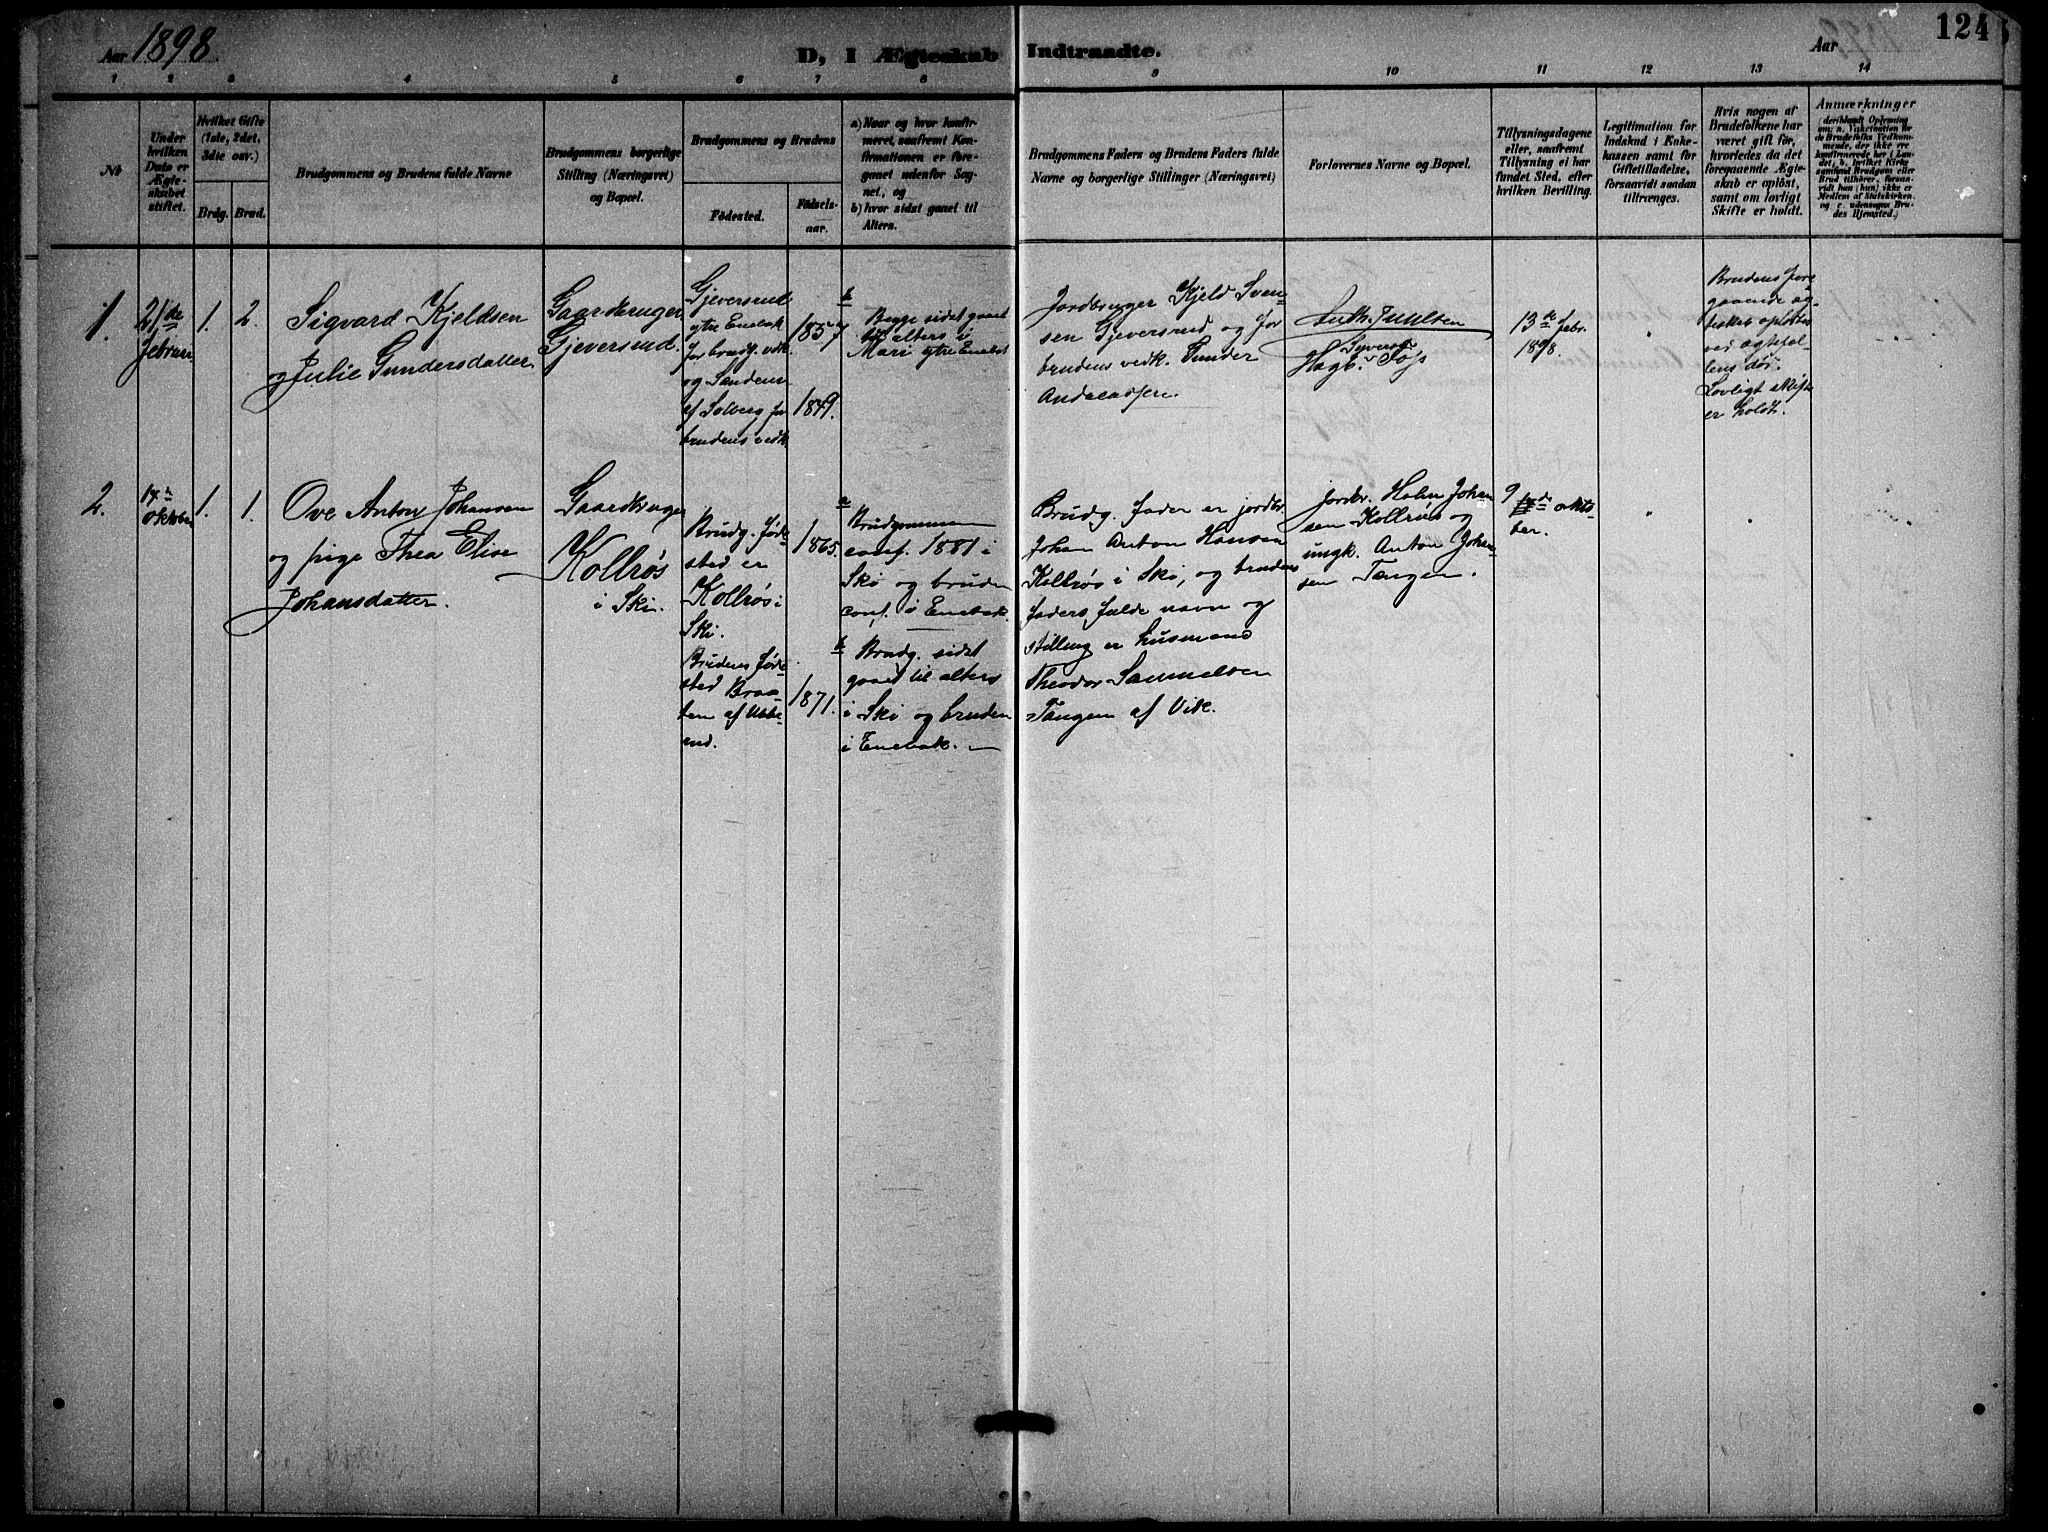 Aar 1898.
D, I Ægteskab Indtraadte.
Aar
124
1 2 3 4 5 6 7 8 9 10 11 12 13 14
No
Under hvilken Dato er Ægteskabet stiftet.
Hvilket Gifte (1ste, 2det, 3die osv.)
Brdg. Brud.
Brudgommens og Brudens fulde Navne
Brudgommens borgerlige Stilling (Næringsvei) og Bopæl.
Brudgommens og Brudens
Fødested.
Fødselsaar.
a) Naar og hvor konfirmeret, saafremt Konfirmationen er foregaaet udenfor Sognet, og
b) hvor sidst gaaet til Alters.
Brudgommens Faders og Brudens Faders fulde Navne og borgerlige Stillinger (Næringsvei)
Forlovernes Navne og Bopæl.
Tillysningsdagene eller, saafremt Tillysning ei har fundet Sted, efter hvilken Bevilling.
Legitimation for Indskud i Enkekassen samt for Giftetilladelse, forsaavidt saadan tiltrænges.
Hvis nogen af Brudefolkene har været gift før, hvorledes da det foregaaende Ægteskab er opløst, samt om lovligt Skifte er holdt.
Anmærkninger
1.
21de
februar
1. 2.
Sigvard Kjeldsen
og Julie Gundersdatter
Gaardbruger
Gjeversrud.
Gjeversrud
ytre Enebak
for brudg. vedk.
og Sanden
af Solberg for
brudens vedk.
1857
1849.
b
Begge sidst gaaet
til alters i
Mari ytre Enebak
Jordbruger Kjeld Svensen
Gjeversrud og for
brudens vedk. Gunder
Andreassen.
13de febr.
1898.
Brudens foregaaende
ægteskab opløstes
ved ægtefællens
død.
Lovligt skifte
er holdt.
2.
14de
oktober
1. 1.
Ove Anton Johansen
og pige Thea Elise
Johansdatter.
Gaardbruger
Kollrøs
i Ski.
Brudg. fødested
er
Kollrøs i
Ski.
Brudens fødested
Braaten
af
1865.
1871.
a
Brudgommen
conf. 1881 i
Ski og bruden
conf. i Enebak.
b
Brudg. sidst
gaaet til alters
i Ski og bruden
i Enebak.
Brudg. fader er jordbr.
Johan Anton Hansen
Kollrøs i Ski, og brudens
faders fulde navn og
stilling er husmand
Theodor Samuelsen
Tangen af Vik.
jordbr. Johansen
Kollrøs og
ungk. Anton Johansen
Tangen.
9de oktober.